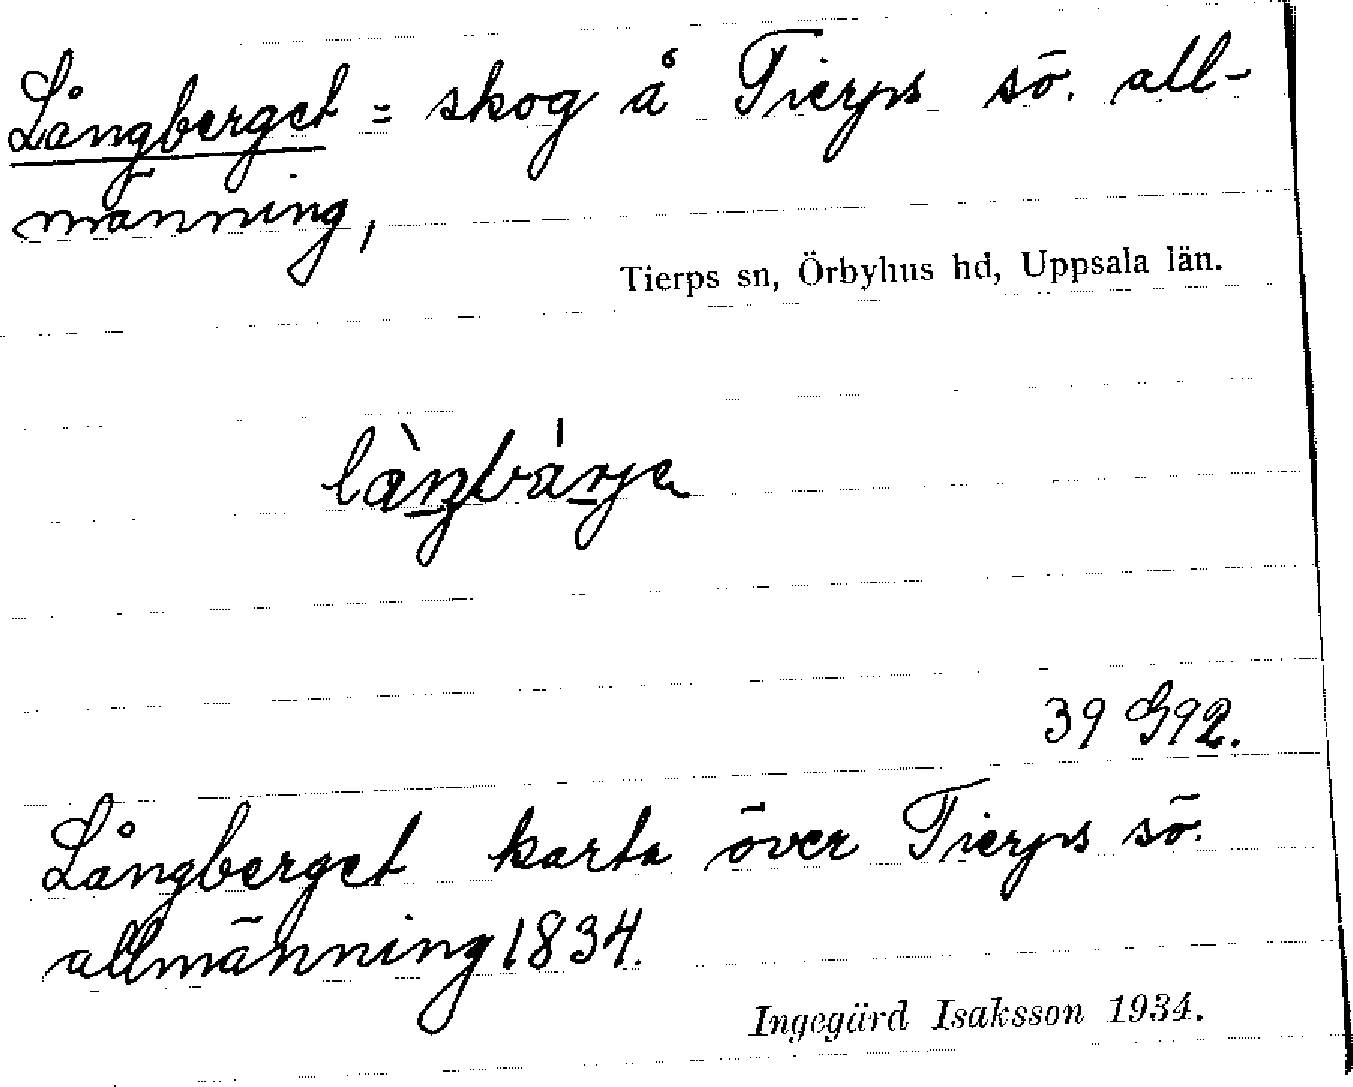 Långberget = skog å Tierps sö. all-
männing,
Tierps sn, Örbyhus hd, Uppsala län.
39 G92.
Långberget karta över Tierps sö.
allmänning 1834.
Ingegärd Isaksson 1934.